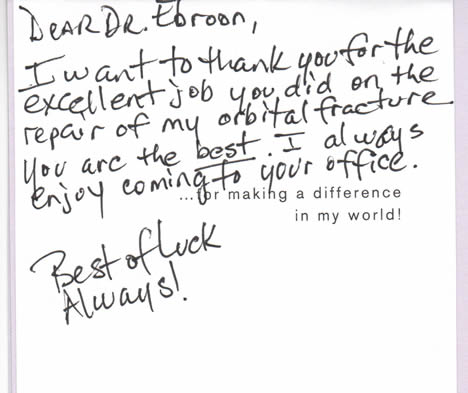 Dear Dr. Ebroon,
I want to thank you for the
excellent job you did on the
repair of my orbital fracture
You are the best. I always
enjoy coming to your office.
...for making a difference
in my world!
Best of Luck
Always!